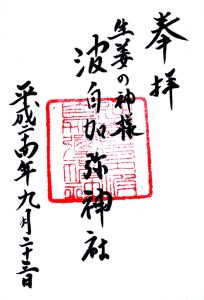 奉拝
生姜の神様
波自加弥神社
平成二十四年九月二十三日